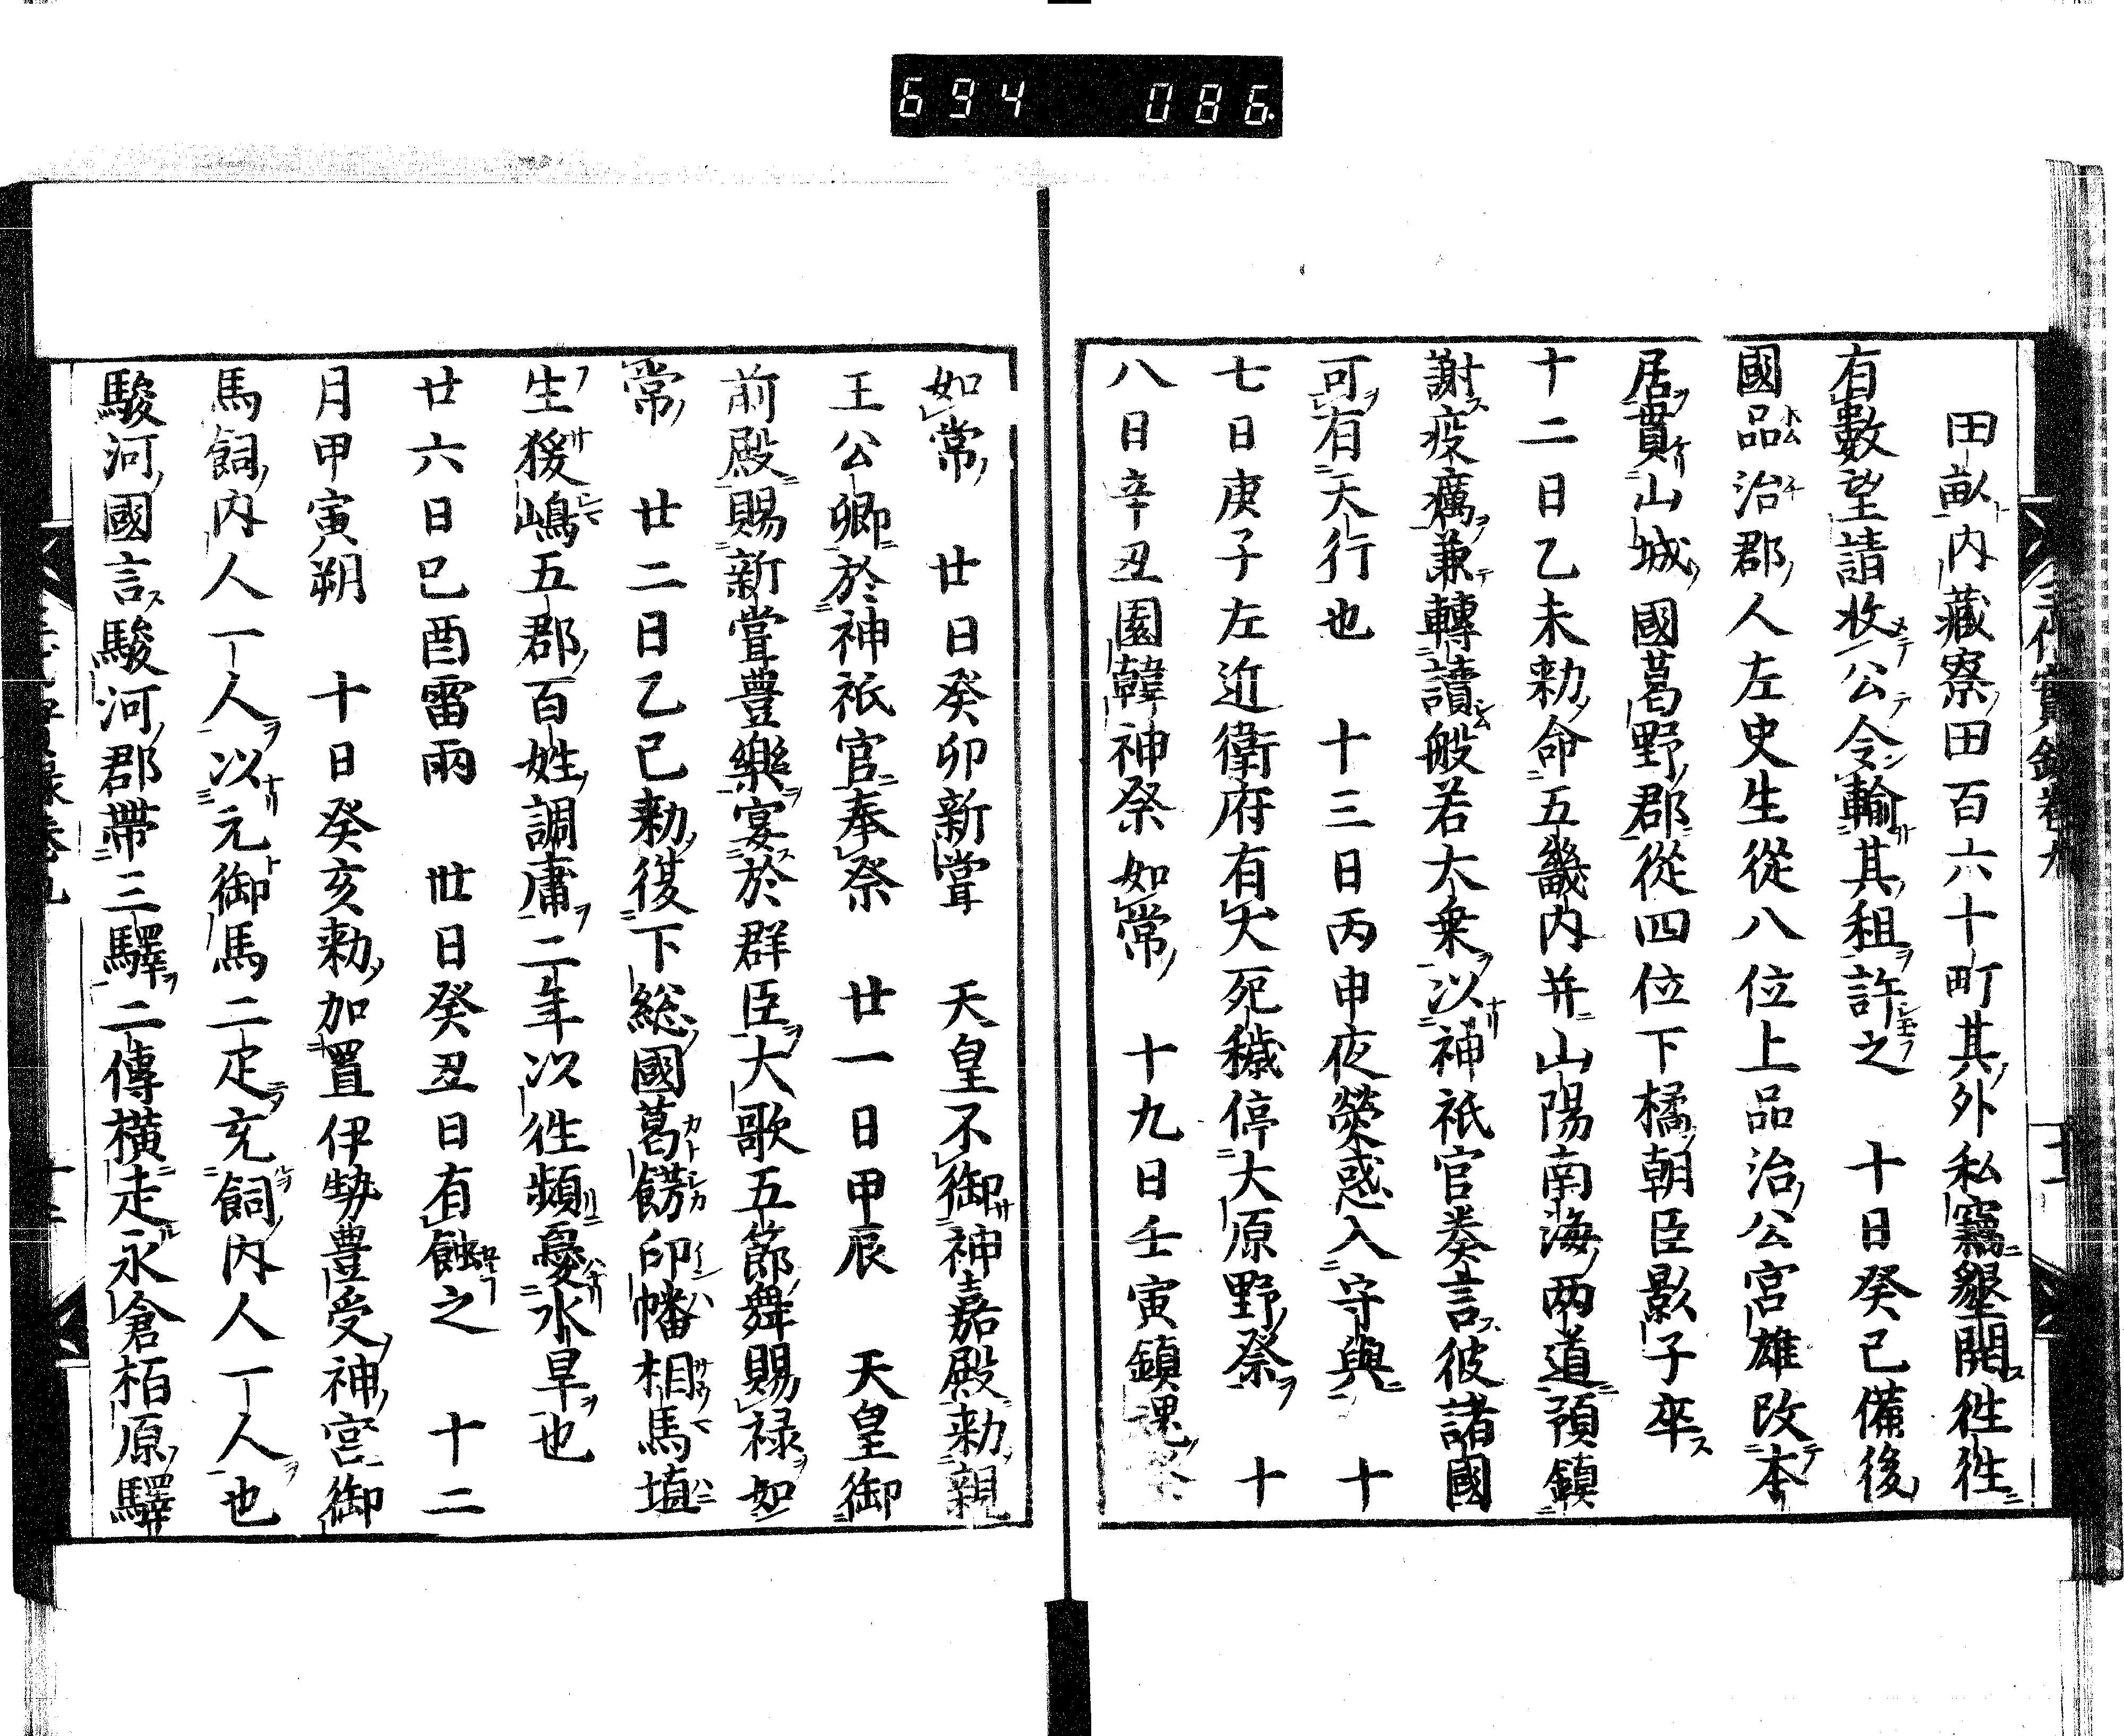 694 086
田畝内藏寮田百六十町其外私竊墾開徃徃
有數望請收公令輸其租許之 十日癸巳備後
國品治郡人左史生從八位上品治公宮雄改本
居貫山城國葛野郡從四位下橘朝臣影子卒
十二日乙未勅命五畿内并山陽南海兩道預鎮
謝疫癘兼轉讀般若大乗以神祇官奏言彼諸國
可有天行也 十三日丙申夜熒惑入守與 十
七日庚子左近衛府有犬死穢停大原野祭 十
八日辛丑園韓神祭如常 十九日壬寅鎮魂祭
如常 廿日癸卯新甞 天皇不御神嘉殿勅親
王公卿於神祇官奉祭 廿一日甲辰 天皇御
前殿賜新甞豊樂宴於群臣大歌五節舞賜禄如
常 廿二日乙巳勅復下総國葛餝印幡相馬埴
生猨嶋五郡百姓調庸二年以徃頻憂水旱也
廿六日己酉雷雨 丗日癸丑日有蝕之 十二
月甲寅朔 十日癸亥勅加置伊勢豊受神宮御
馬飼内人一人以元御馬二疋充飼内人一人也
駿河國言駿河郡帶三驛二傳横走永倉栢原驛